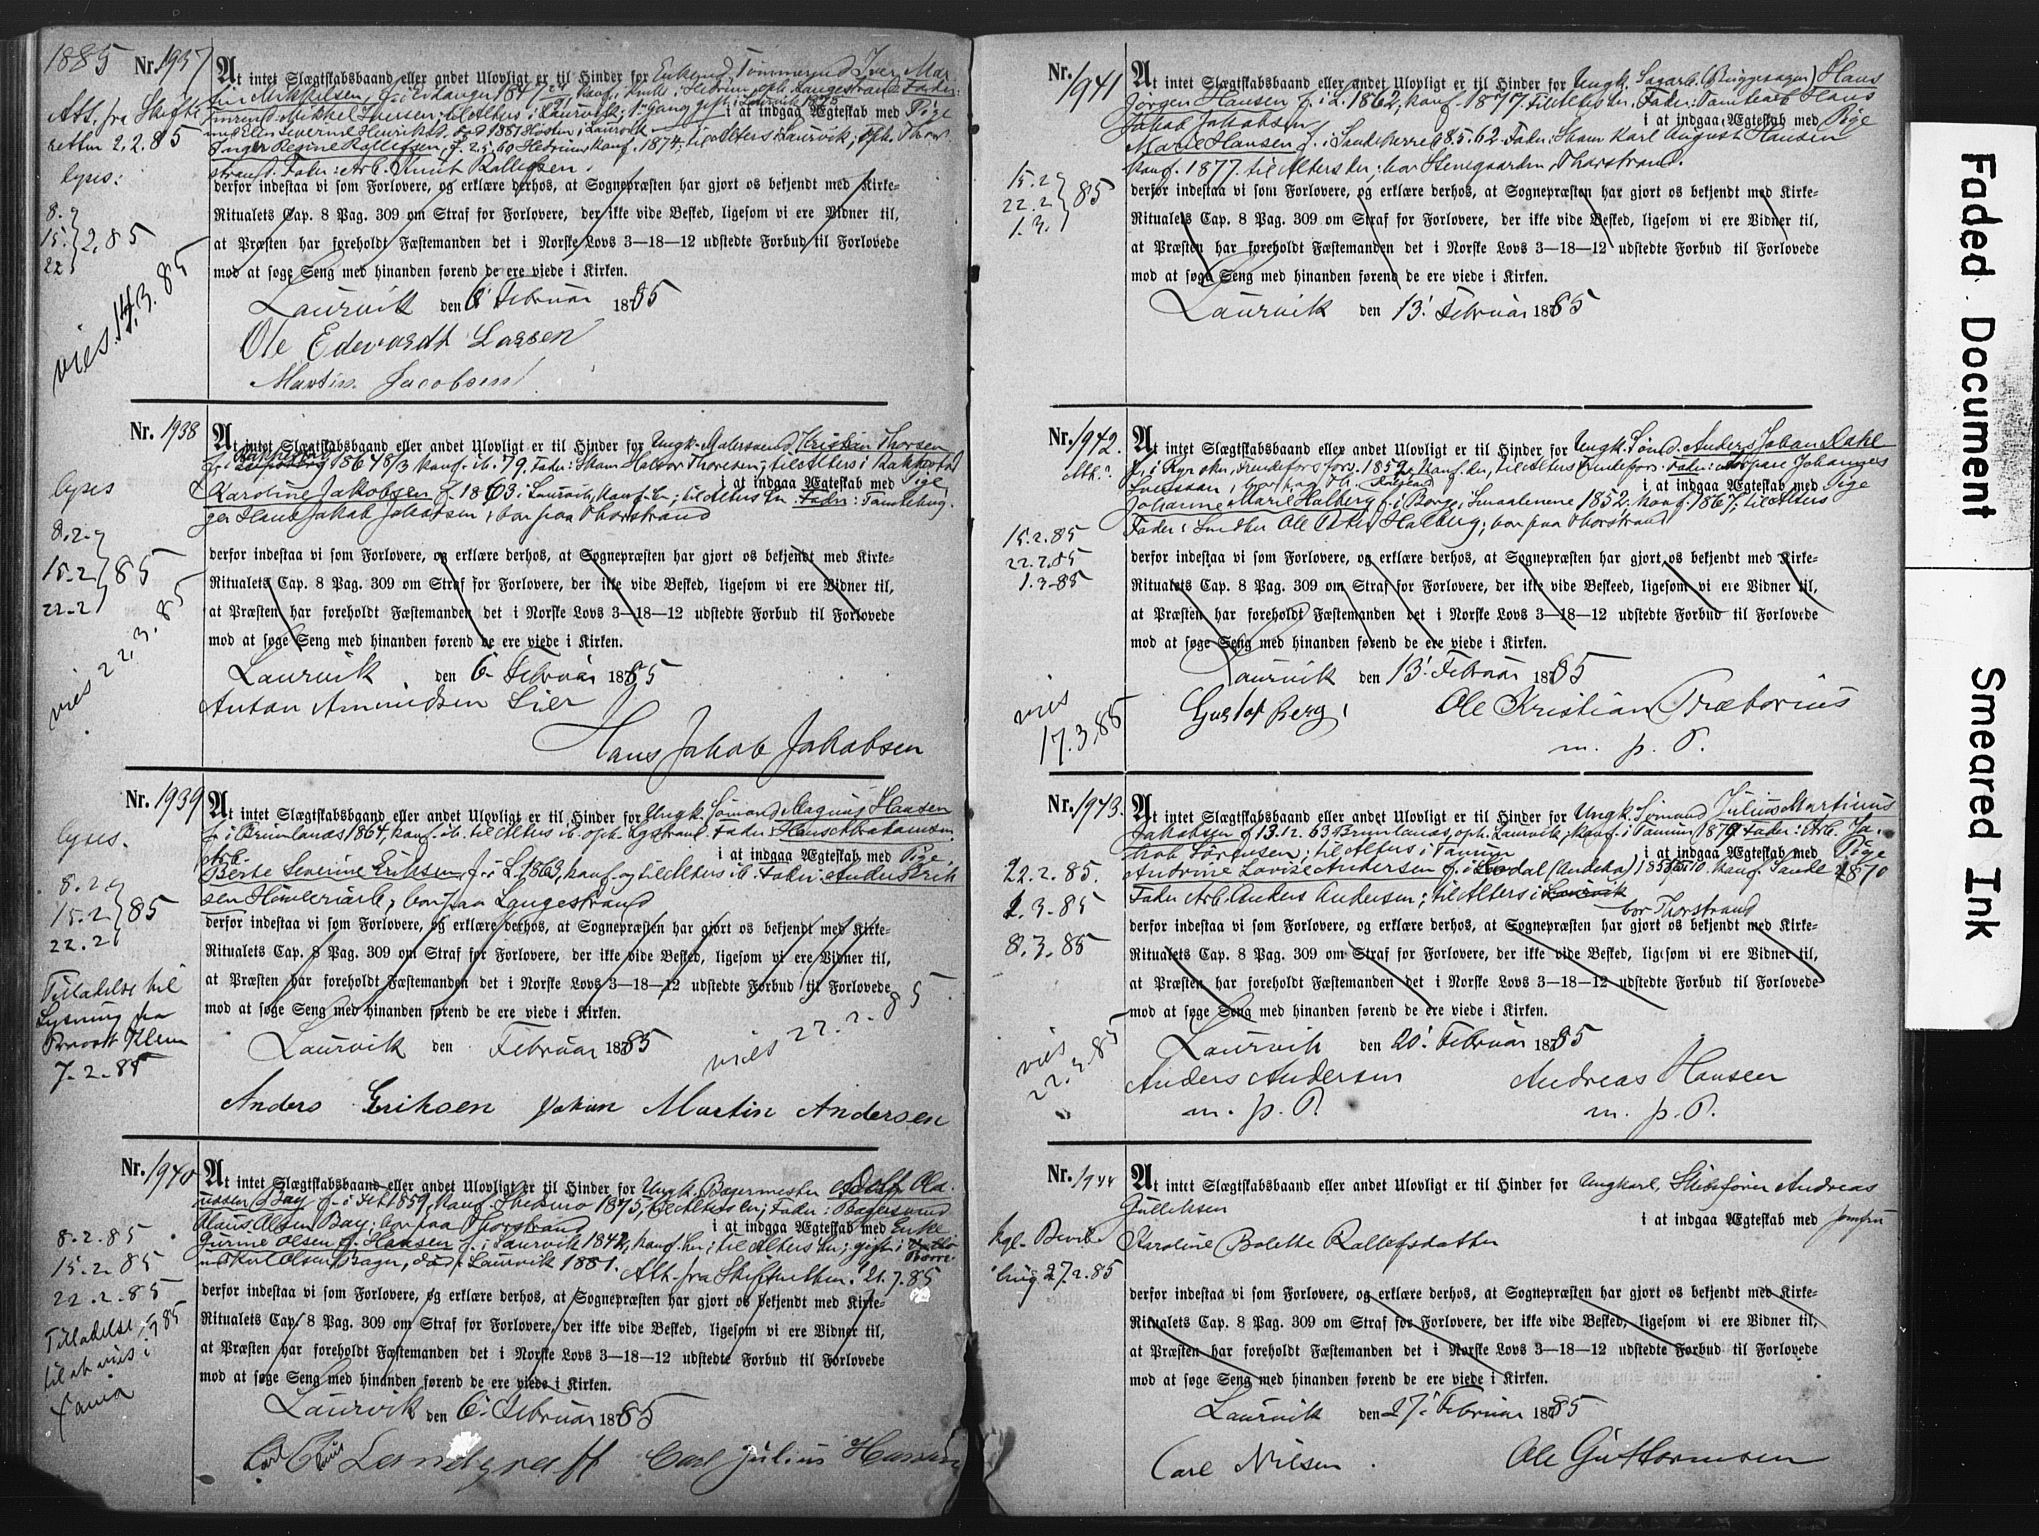 1885
Nr. 1937
At intet Slægtskabsbaand eller andet Ulovligt er til Hinder for Enkemd. Tømmermd Iver Mar-
tin Mikkelsen, f. i Eidanger 1847 konf. Hedrum, oph. Langestrand Fader:
Tømrmd. Mikkel Iversen; til Alters i Laurvik; 1ste Gang gift i Laurvik 1875
i at indgaa Ægteskab med Pige
med Elen Severine Henriksd. død 1881 Høsten i Laurvik
Inger Regine Rollefsen, f. 2.5.60 Hedrum, konf. 1874; til Alters i Laurvik; oph. Thor-
strand. Fader: Arb. Knut Rollefsen.
derfor indestaa vi som Forlovere, og erklære derhos, at Sognepræsten har gjort os bekjendt med Kirke-
Ritualets Cap. 8 Pag. 309 om Straf for Forlovere, der ikke vide Besked, ligesom vi ere Vidner til,
at Præsten har foreholdt Fæstemanden det i Norske Lovs 3—18—12 udstedte Forbud til Forlovede
mod at søge Seng med hinanden førend de ere viede i Kirken.
Laurvik den 6' Februar 1885
Ole Edevardt Larsen
Martin Jacobsen
Att. fra Skifte
retten 2.2.85
lyses:
8.
15. } 2.85
22
vies 14.3.85
Nr. 1938
At intet Slægtskabsbaand eller andet Ulovligt er til Hinder for Ungk. Malersvend Kristian Thorsen
f. i 1864 8/3 konf. ib. 79. Fader: Skom. Halvor Thoresen; til Alters i Bakkestad
i at indgaa Ægteskab med Pige
Karoline Jakobsen f. 1863 i Laurvik, konf. her; til Alters her. Fader: Tømtehug-
ger Hans Jakob Jakobsen, bor paa Thorstrand
derfor indestaa vi som Forlovere, og erklære derhos, at Sognepræsten har gjort os bekjendt med Kirke-
Ritualets Cap. 8 Pag. 309 om Straf for Forlovere, der ikke vide Besked, ligesom vi ere Vidner til,
at Præsten har foreholdt Fæstemanden det i Norske Lovs 3—18—12 udstedte Forbud til Forlovede
mod at søge Seng med hinanden førend de ere viede i Kirken.
Laurvik den 6' Februar 1885
Anton Amundsen Lier
Hans Jakob Jakobsen
lyses
8.2-
15.2 } 85
22-2
vies 22.3.85
Nr. 1939
At intet Slægtskabsbaand eller andet Ulovligt er til Hinder for Ungk. Sømand Magnus Hansen
f. i Brunlanæs 1864, konf. ib. til Alters ib. oph. Lgstrand. Fader: Hans Abrahamsen
Arb.
i at indgaa Ægteskab med Pige
Berte Severine Eriksen, f. i L. 1863, konf. og til Alters ib. Fader: Anders Erik
sen Høvleriarb., bor paa Langestrand
derfor indestaa vi som Forlovere, og erklære derhos, at Sognepræsten har gjort os bekjendt med Kirke-
Ritualets Cap. 8 Pag. 309 om Straf for Forlovere, der ikke vide Besked, ligesom vi ere Vidner til,
at Præsten har foreholdt Fæstemanden det i Norske Lovs 3—18—12 udstedte Forbud til Forlovede
mod at søge Seng med hinanden førend de ere viede i Kirken.
vies 22.2.85
Laurvik den Februar 1885
Anders Eriksen Johan Martin Andersen
lyses.
8.2
15.2 } 85
22.2
Tilladelse til
Lysning fra
Provst Klem
7.2.85
Nr. 1940
At intet Slægtskabsbaand eller andet Ulovligt er til Hinder for Ungk. Bagermester Adolf Cla-
ussen Bay f. i 1859, konf. 1875, til Alters her; Fader: Bagersvend
Klaus Olsen Bay; bor paa Thorstrand
i at indgaa Ægteskab med Enke
Gurine Olsen f. Hansen f. i Laurvik 1842, konf. her; til Alters her; gift i
m. Karl Olsen Bager, død i Laurvik 1881. Att. fra Skifteretten 21.7.85
derfor indestaa vi som Forlovere, og erklære derhos, at Sognepræsten har gjort os bekjendt med Kirke-
Ritualets Cap. 8 Pag. 309 om Straf for Forlovere, der ikke vide Besked, ligesom vi ere Vidner til,
at Præsten har foreholdt Fæstemanden det i Norske Lovs 3—18—12 udstedte Forbud til Forlovede
mod at søge Seng med hinanden førend de ere viede i Kirken.
Laurvik den 6' Februar 1885
Carl Claus Landgraff Carl Julius Hansen
8.2.85
15.2.85
22.2.85
Tilladelse
til at vies i
Tanum
Nr. 1941
At intet Slægtskabsbaand eller andet Ulovligt er til Hinder for Ungk. Sagarb. (Bryggesagen) Hans
Jørgen Hansen f. i L. 1862, konf. 1877, til Alters her. Fader: Tømteh. Hans
Jakob Jakobsen
i at indgaa Ægteskab med Pige
Marie Hansen f. i Sandeherred 8.5.62. Fader: Skom. Karl August Hansen
konf. 1877 til Alters her; bor Stengaarden, Thorstrand.
derfor indestaa vi som Forlovere, og erklære derhos, at Sognepræsten har gjort os bekjendt med Kirke-
Ritualets Cap. 8 Pag. 309 om Straf for Forlovere, der ikke vide Besked, ligesom vi ere Vidner til,
at Præsten har foreholdt Fæstemanden det i Norske Lovs 3—18—12 udstedte Forbud til Forlovede
mod at søge Seng med hinanden førend de ere viede i Kirken.
Laurvik den 13' Februar 1885
15.2
22.2 } 85
1.3.
Nr. 1942.
At intet Slægtskabsbaand eller andet Ulovligt er til Hinder for Ungk. Sømd. Anders Johan Dahl
f. i Ryr skn, 1857, konf. der, til Alters Fader: Johannes
Svensson, bor paa Th.
i at indgaa Ægteskab med Pige
Johanne Marie Halberg f. i Borge, Smaalenene 1852. konf. 1867, til Alters
Fader: Smed Ole Halberg; bor paa Thorstrand
derfor indestaa vi som Forlovere, og erklære derhos, at Sognepræsten har gjort os bekjendt med Kirke-
Ritualets Cap. 8 Pag. 309 om Straf for Forlovere, der ikke vide Beskeed, ligesom vi ere Vidner til,
at Præsten har foreholdt Fæstemanden det i Norske Lovs 3—18—12 udstedte Forbud til Forlovede
mod at søge Seng med hinanden førend de ere viede i Kirken.
Laurvik den 13' Februar 1885
Gustaf Berg, Ole Kristian Præborius
m. p. P.
Att.?
15.2.85
22.2.85
1.3-85
vies
17.3.85
Nr. 1943.
At intet Slægtskabsbaand eller andet Ulovligt er til Hinder for Ungk. Sømand Julius Martinus
Jakobsen f. 13.12.63 Brunlanæs, oph. Laurvik, konf. i Tanum 1879 Fader: Arb. Ja-
kob Sørensen; til Alters i Tanum
i at indgaa Ægteskab med Pige
Andrine Lovise Andersen f. i konf. Sande 1870
Fader Arb. Anders Andersen; til Alters i Laurvik
bor Thorstrand
derfor indestaa vi som Forlovere, og erklære derhos, at Sognepræsten har gjort os bekjendt med Kirke-
Ritualets Cap. 8 Pag. 309 om Straf for Forlovere, der ikke vide Besked, ligesom vi ere Vidner til,
at Præsten har foreholdt Fæstemanden det i Norske Lovs 3—18—12 udstedte Forbud til Forlovede
mod at søge Seng med hinanden førend de ere viede i Kirken.
Laurvik den 20' Februar 1885
Anders Andersen Andreas Hansen
m. p. P. m. p. P.
22.2.85.
1.3.85
8.3.85
vies
22.3.85
Nr. 1944
At intet Slægtskabsbaand eller andet Ulovligt er til Hinder for Ungkarl, Skibsfører Andreas
Gulliksen
i at indgaa Ægteskab med Jomfru
Karoline Bolette Rollefsdatter
derfor indestaa vi som Forlovere, og erklære derhos, at Sognepræsten har gjort os bekjendt med Kirke-
Ritualets Cap. 8 Pag. 309 om Straf for Forlovere, der ikke vide Besked, ligesom vi ere Vidner til,
at Præsten har foreholdt Fæstemanden det i Norske Lovs 3—18—12 udstedte Forbud til Forlovede
mod at søge Seng med hinanden førend de ere viede i Kirken.
Laurvik den 27' Februar 1885
Carl Nilsen Ole Guttormsen
Kgl. Bevil-
ling 27.2.85
Faded Document
Smeared Ink